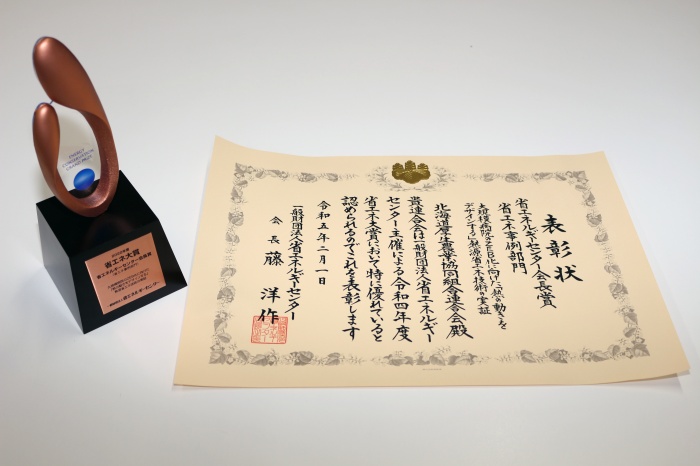 表彰状
省エネルギーセンター会長賞
省エネ事例部門
大規模病院のZEB化に向けた「熱の動きを
デザインする」熱源省エネ技術の実証
北海道厚生農業協同組合連合会殿
貴連合会は一般財団法人省エネルギー
センター主催による令和四年度
省エネ大賞において特に優れていると
認められるのでこれを表彰します
令和五年二月一日
一般財団法人省エネルギーセンター
会長 藤洋作
ENERGY
CONSERVATION
GRAND PRIZE
省エネ大賞
省エネルギーセンター会長賞
省エネルギーセンター